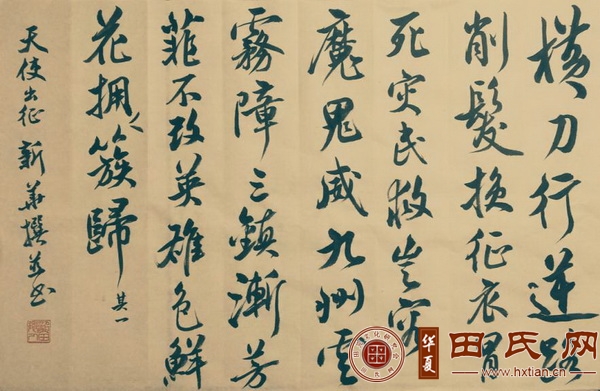 横刀行逆路
削髮换征衣冒
死灾民救岂容
魔鬼威九州雲
霧障三鎮漸芳
菲不改英雄色鮮
花拥簇歸 其一
天使出征 新华撰并书
华夏
田氏网
www.hxtian.cn